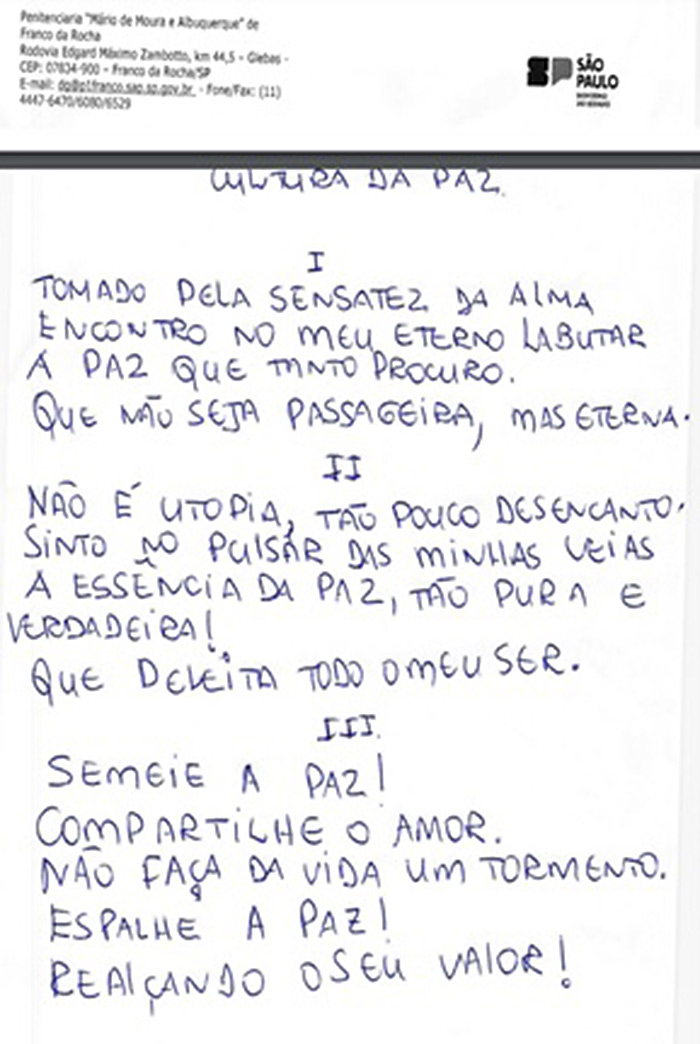 Penitenciaria "Mário de Moura e Albuquerque" de
Franco da Rocha
Rodovia Edgard Máximo Zambotto, km 44,5 - Glebas -
CEP: 07834-900 - Franco da Rocha/SP
E-mail: dg@p1franco.sap.sp.gov.br - Fone/Fax: (11)
4447-6470/6080/6529
SÃO
PAULO
CULTURA DA PAZ.
I
TOMADO PELA SENSATEZ DA ALMA
ENCONTRO NO MEU ETERNO LABUTAR
A PAZ QUE TANTO PROCURO.
QUE NÃO SEJA PASSAGEIRA, MAS ETERNA.
II
NÃO É UTOPIA, TÃO POUCO DESENCANTO.
SINTO NO PULSAR DAS MINHAS VEIAS
A ESSÊNCIA DA PAZ, TÃO PURA E
VERDADEIRA!
QUE DELEITA TODO O MEU SER.
III.
SEMEIE A PAZ!
COMPARTILHE O AMOR.
NÃO FAÇA DA VIDA UM TORMENTO.
ESPALHE A PAZ!
REALÇANDO O SEU VALOR!